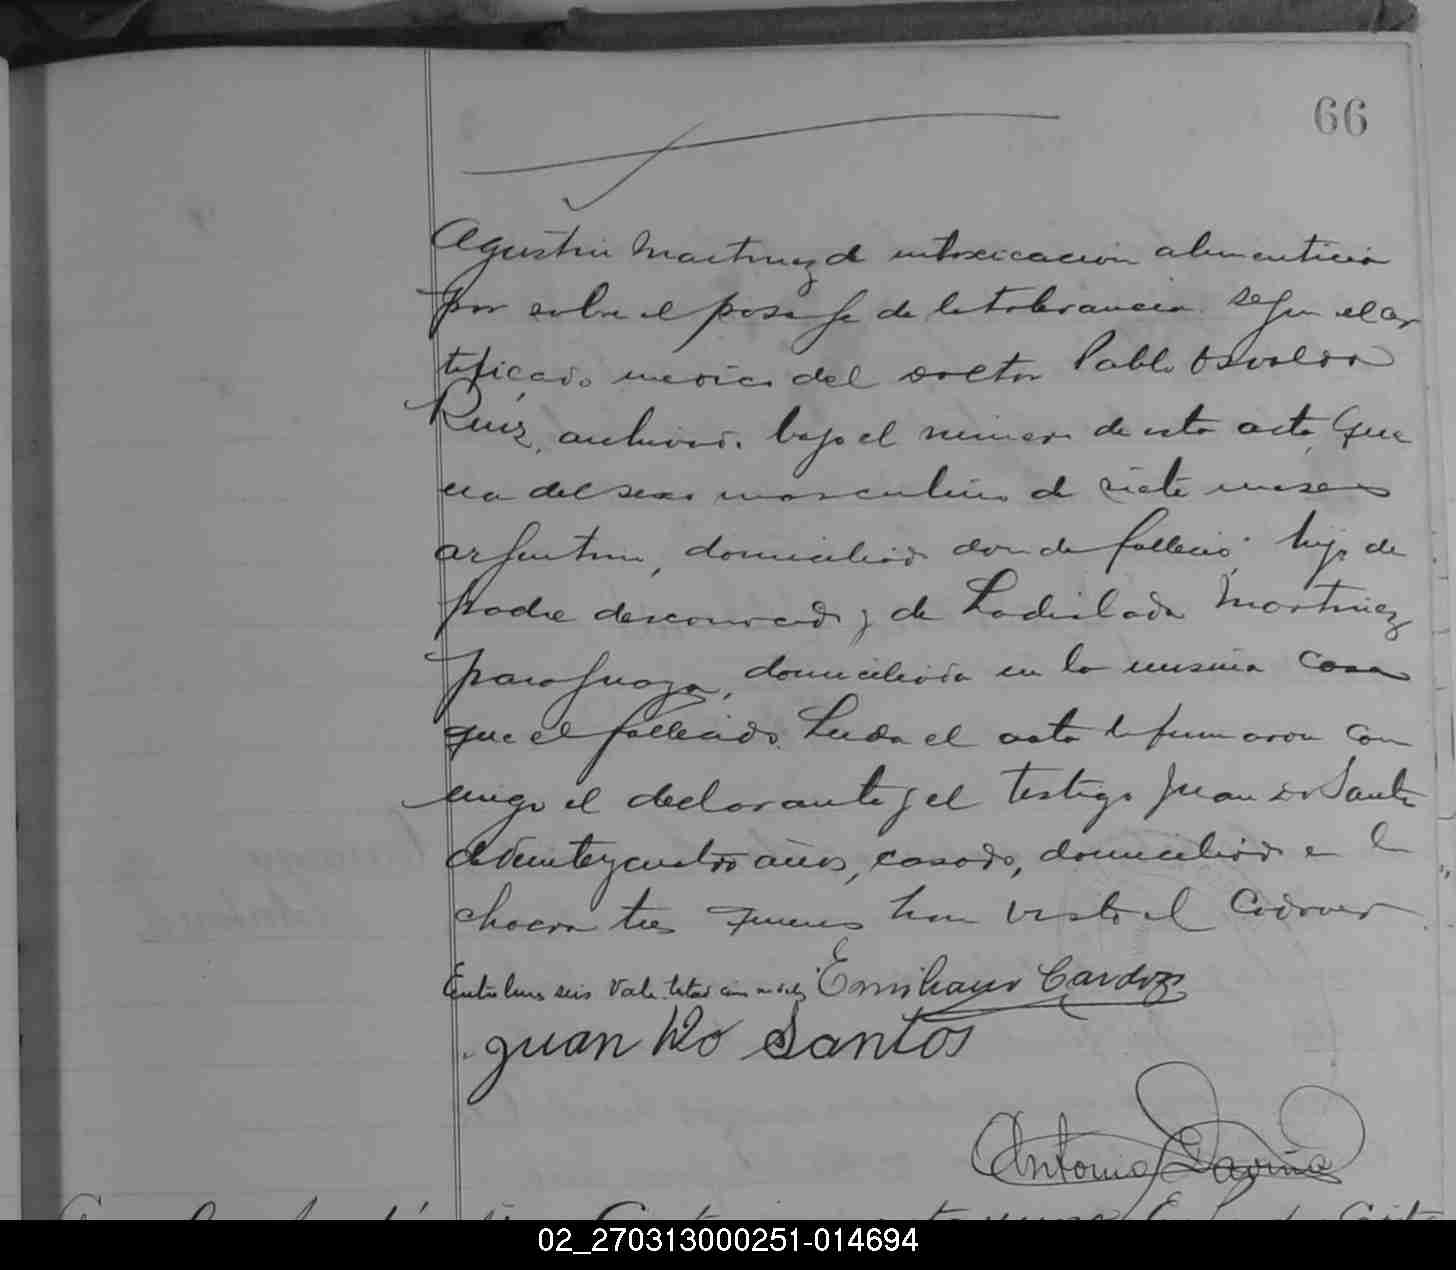 66
Agustin Martinez de intoxicacion alimenticia
por sobre el pasaje de la tolerancia segun el cer
tificado medico del doctor Pablo Osvaldo
Ruiz, archivado bajo el numero de esta acta, Que
era del sexo masculino de siete meses
argentino, domiciliado donde fallecio; hijo de
padre desconocido y de Ladislada Martinez
paraguaya, domiciliada en la misma casa
que el fallecido. Leida el acta la firmaron con
migo el declarante y el testigo Juan Do Santo
de veinte y cuatro años, casado, domiciliado en la
chacra tres quienes han visto el cadaver
Entre lineas seis Vale
Emiliano Cardozo
Juan Do Santos
Antonio Gaviña
02_270313000251-014694